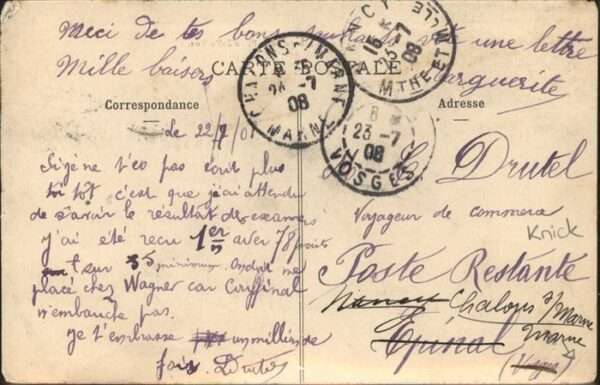 Meci de tes bons souhaits une lettre
Mille baisers Marguerite
CARTE POSTALE
Correspondance
Adresse
CHALONS S/MARNE
24 -7
08
MARNE
NANCY
23 -7
08
MTHE ET M
23 -7
08
VOSGES
le 22/7/08
si je ne t'ec pas écrit plus
tot c'est que j'ai attendu
de savoir le résultat des examens
j'ai été recu 1er avec 78 points
sur 35 minimum. André me
place chez Wagner car Cardinal
n'embauche pas.
je t'embrasse un million de
fois. Drutel
Drutel
Voyageur de commerce
Knick
Poste Restante
Nancy Chalons s/Marne
Epinal Marne
(Vosges)